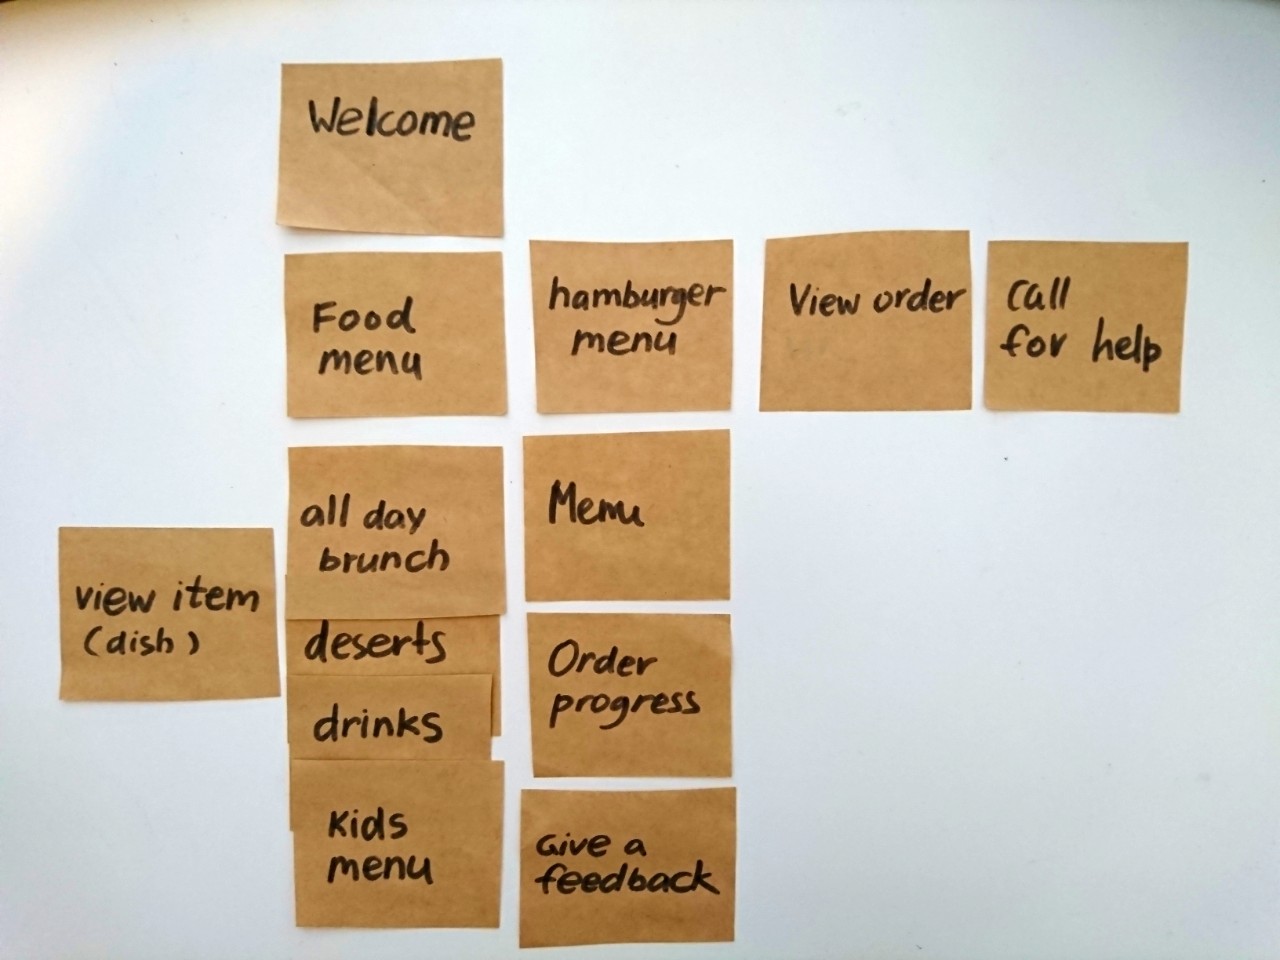 Welcome
Food
menu
hamburger
menu
View order
Call
for help
view item
(dish)
all day
brunch
deserts
drinks
Kids
menu
Menu
Order
progress
Give a
feedback